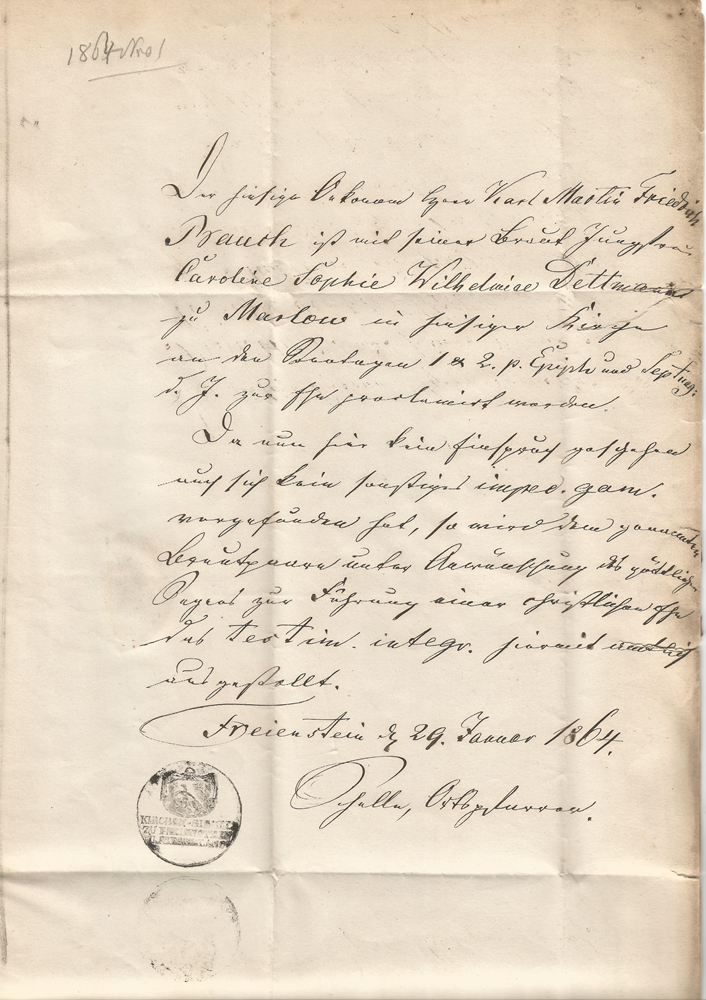 1864 No 1
Der hiesige Oekonom Herr Karl Martin Friedrich
Bauch ist mit seiner Braut Jungfrau
Caroline Sophie Wilhelmine Dettmann
zu Marlow in hiesiger Kirche
an den Sonntagen 1 & 2. p. Epiph und Septuag:
d. J. zur Ehe proclamirt worden.
Da nun hier kein Einspruch geschehen
auch sich kein sonstiges imped. gam.
vorgefunden hat, so wird dem genannten
Brautpaare unter Anwünschung des göttlichen
Segens zur Führung einer christlichen Ehe
das testim. integr. hiermit amtlich
ausgestellt.
Freienstein d 29. Januar 1864.
Schelle, Ortspfarrer.
KIRCHEN
ZU